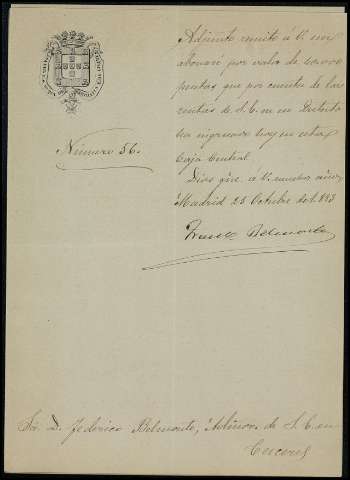 Adjunto remito á V. un
abonaré por valor de 40.000
pesetas que por cuenta de las
rentas de S. E. en su Distrito
ha ingresado hoy en esta
Caja Central.
Dios gũe. a V. muchos años
Madrid 25 Octubre de 1.893
Número 56.
Belmonte
Sr. D. Federico Belmonte, Admor. de S. E. en